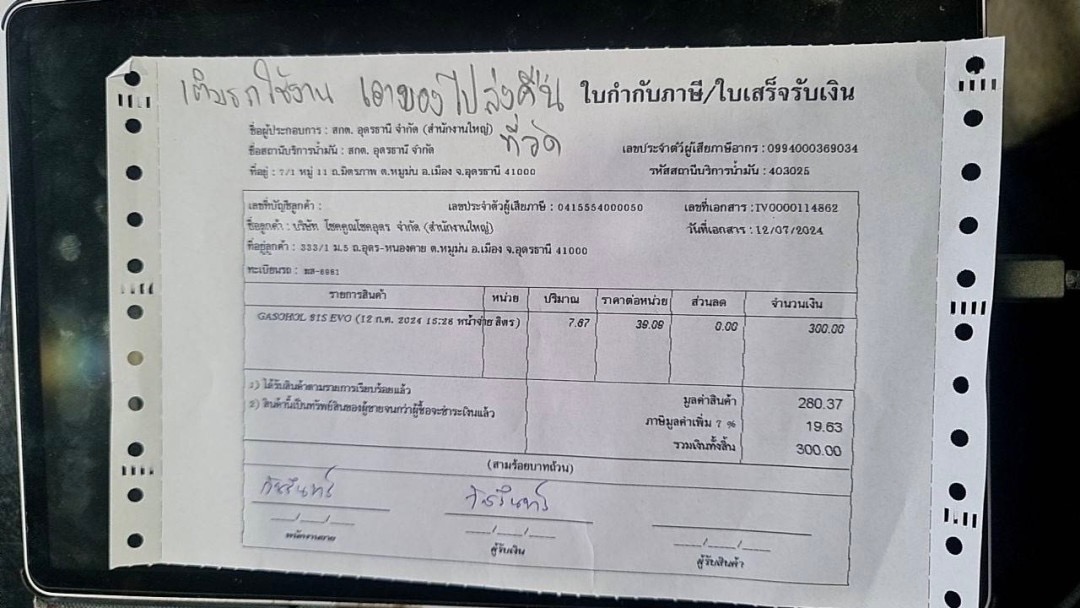 เติมรถใช้งาน เอาของไปส่งคืน
ที่วัด
ใบกำกับภาษี/ใบเสร็จรับเงิน
ชื่อผู้ประกอบการ : สกต. อุดรธานี จำกัด (สำนักงานใหญ่)
ชื่อสถานีบริการน้ำมัน : สกต. อุดรธานี จำกัด เลขประจำตัวผู้เสียภาษีอากร : 0994000369034
ที่อยู่ : 7/1 หมู่ 11 ถ.มิตรภาพ ต.หมูม่น อ.เมือง จ.อุดรธานี 41000 รหัสสถานีบริการน้ำมัน : 403025
เลขที่บัญชีลูกค้า : เลขประจำตัวผู้เสียภาษี : 0415554000050 เลขที่เอกสาร : IV0000114862
ชื่อลูกค้า : บริษัท โชคคูณโชคอุดร จำกัด (สำนักงานใหญ่) วันที่เอกสาร : 12/07/2024
ที่อยู่ลูกค้า : 333/1 ม.5 ถ.อุดร-หนองคาย ต.หมูม่น อ.เมือง จ.อุดรธานี 41000
ทะเบียนรถ : ผส-6981
รายการสินค้า หน่วย ปริมาณ ราคาต่อหน่วย ส่วนลด จำนวนเงิน
GASOHOL S15 EVO (12 ก.ค. 2024 15:26 หน้าจ่าย ลิตร) 7.67 39.09 0.00 300.00
1) ได้รับสินค้าตามรายการเรียบร้อยแล้ว
2) สินค้านั้นเป็นทรัพย์สินของผู้ขายจนกว่าผู้ซื้อจะชำระเงินแล้ว
มูลค่าสินค้า 280.37
ภาษีมูลค่าเพิ่ม 7 % 19.63
รวมเงินทั้งสิ้น 300.00
(สามร้อยบาทถ้วน)
พนักงานขาย ผู้รับเงิน ผู้รับสินค้า